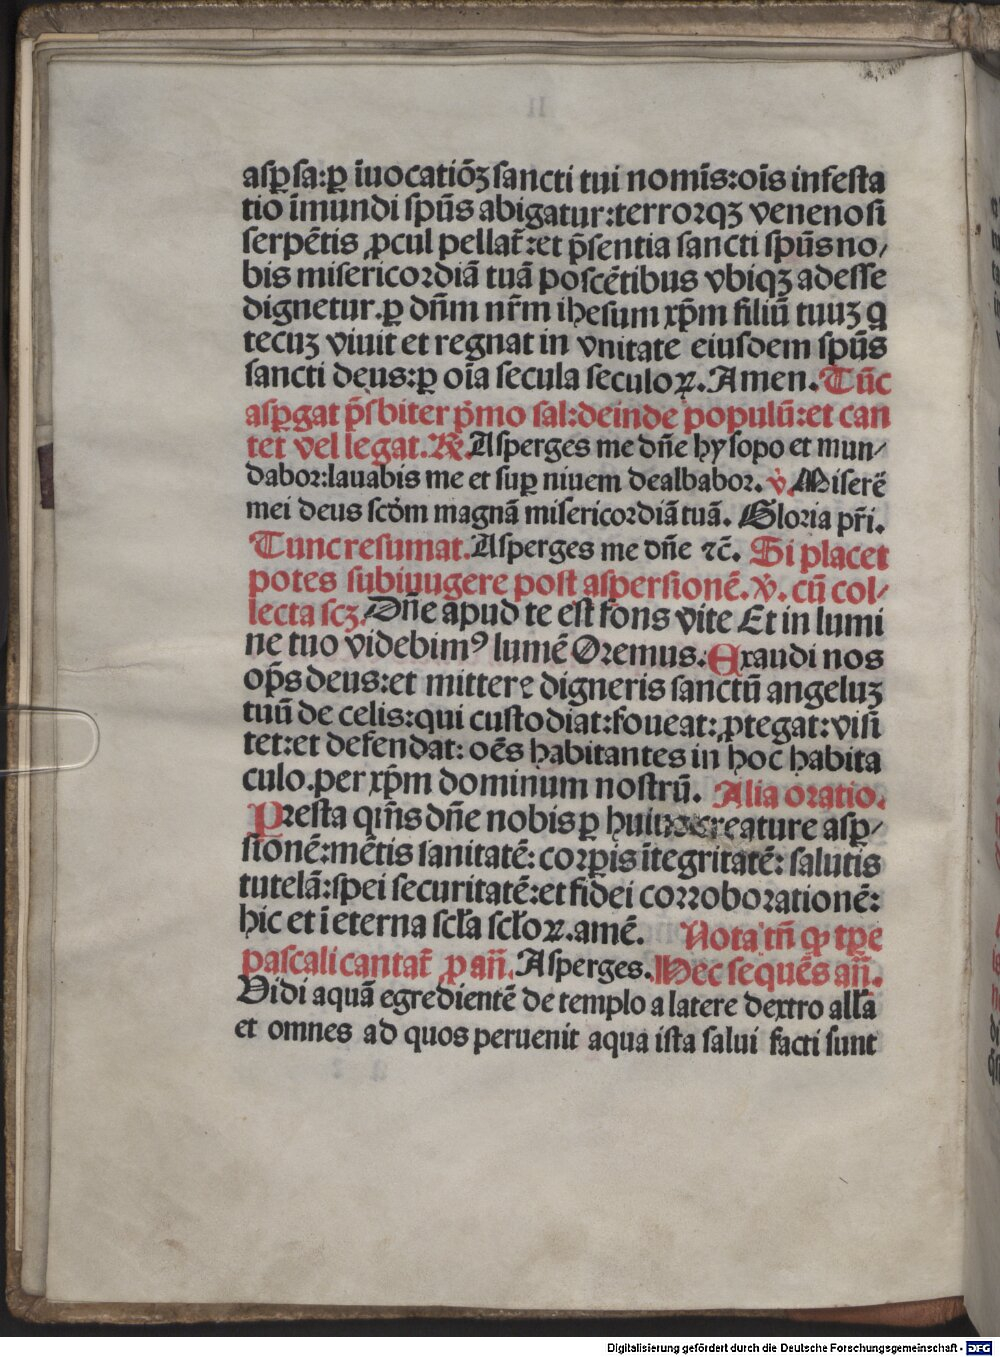 aſꝑſa:ꝑ īuocatiōꝫ ſancti tui nomīs:oīs infeſta
tio īmundi ſpūs abigatur:terrorqꝫ venenoſi
ſerpētis ꝓcul pellat̄:et p̄ſentia ſancti ſpūs no⸗
bis miſericordiā tuā poſcētibus vbiqꝫ adeſſe
dignetur.ꝑ dn̄m nr̄m iheſum xp̄m filiū tuuꝫ q
tecuꝫ viuit et regnat in vnitate eiuſdem ſpūs
ſancti deus:ꝑ oīa ſecula ſeculoꝝ.Amen.Tūc
aſꝑgat p̄ſbiter p̄mo ſal:deinde populū:et can
tet vel legat.℟.Aſperges me dn̄e hyſopo et mun⸗
dabor:lauabis me et ſuꝑ niuem dealbabor. ℣.Miſerē
mei deus ſcd̄m magnā miſericordiā tuā. Gloria pr̄i.
Tunc reſumat.Aſperges me dn̄e ⁊c̄. Si placet
potes ſubiuugere poſt aſperſionē.℣. cū col⸗
lecta ſcꝫ.Dn̄e apud te eſt fons vite Et in lumi
ne tuo videbimꝰ lumē Oremus.Exaudi nos
op̄s deus:et mittere digneris ſanctū angeluꝫ
tuū de celis:qui cuſtodiat:foueat:ꝓtegat:viſi
tet:et defendat: oēs habitantes in hoc habita
culo.per xp̄m dominum noſtrū. Alia oratio.
Preſta qm̄s dn̄e nobis ꝑ huius creature aſꝑ⸗
ſionē:mētis ſanitatē: corꝑis ītegritatē: ſalutis
tutelā:ſpei ſecuritatē:et fidei corroborationē:
hic et ī eterna ſcła ſcłoꝝ.amē. Nota tn̄ ꝙ tꝑe
paſcali cantat̄ ꝓ an̄. Aſperges.Hec ſequēs an̄.
Vidi aquā egredientē de templo a latere dextro alła
et omnes ad quos peruenit aqua iſta ſalui facti ſunt
Digitalisierung gefördert durch die Deutsche Forschungsgemeinschaft - DFG